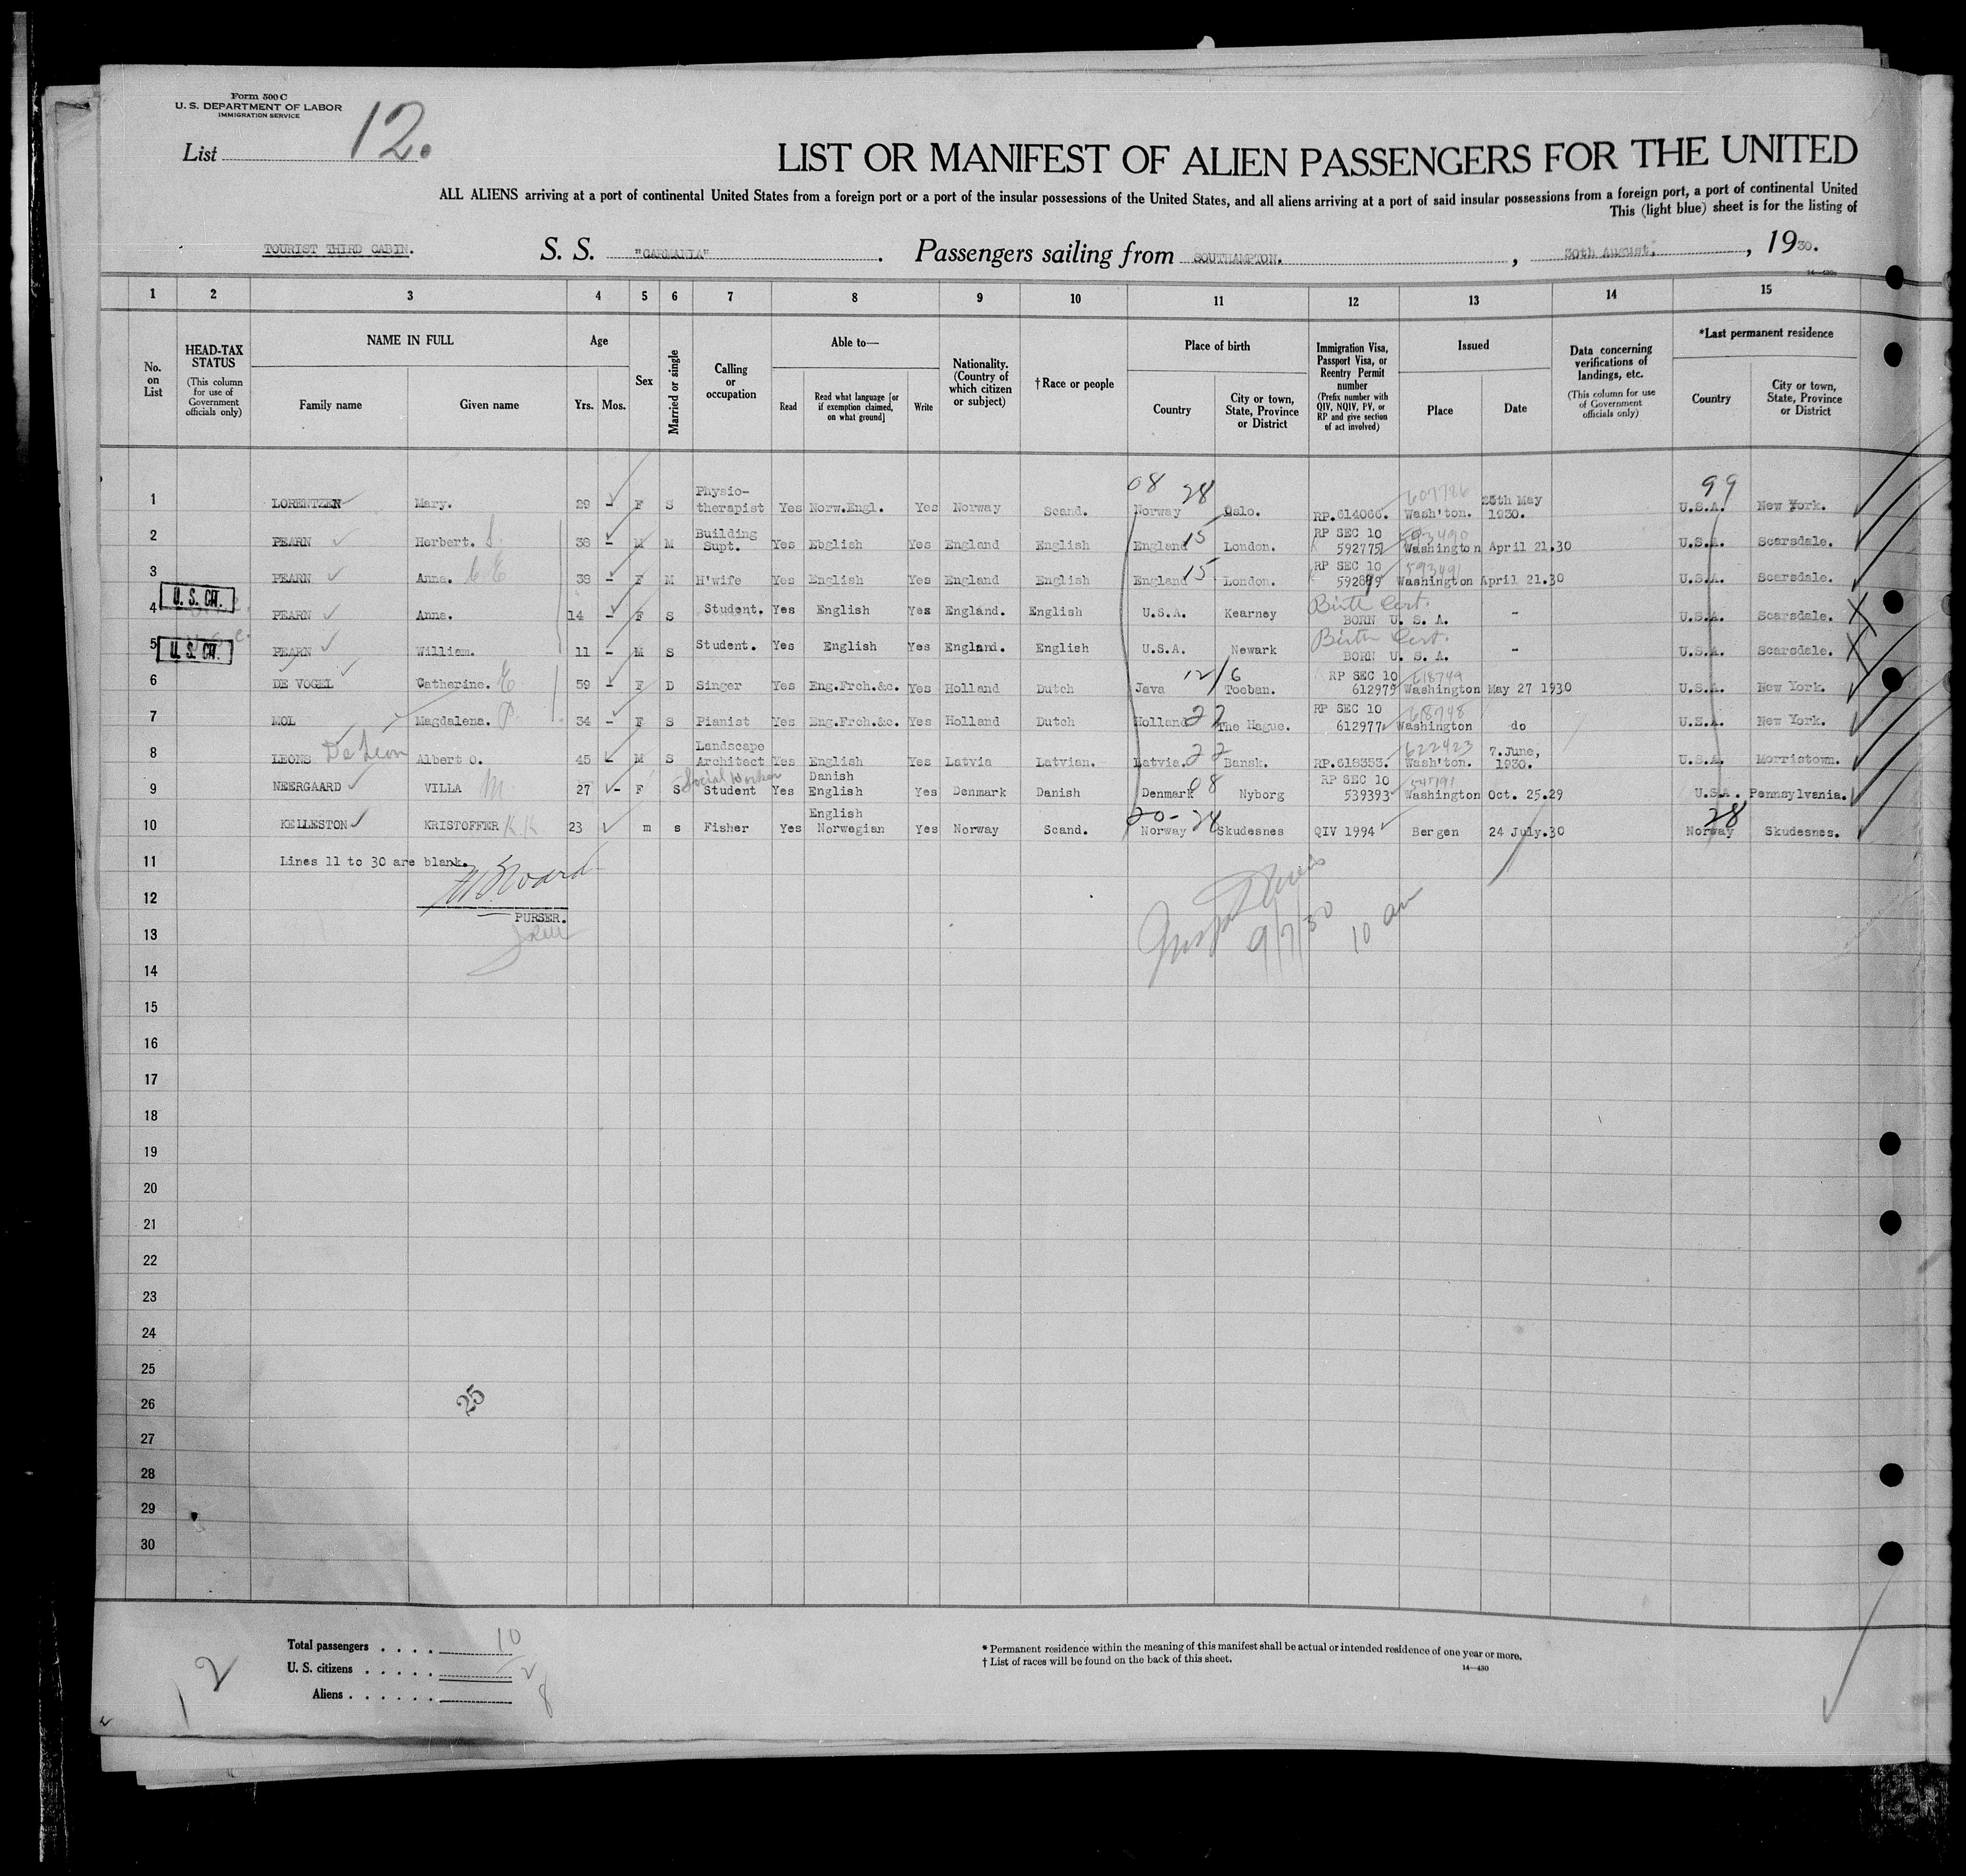 Form 500 C
U. S. DEPARTMENT OF LABOR
IMMIGRATION SERVICE
List 12.
LIST OR MANIFEST OF ALIEN PASSENGERS FOR THE UNITED
ALL ALIENS arriving at a port of continental United States from a foreign port or a port of the insular possessions of the United States, and all aliens arriving at a port of said insular possessions from a foreign port, a port of continental United
This (light blue) sheet is for the listing of
TOURIST THIRD CABIN. S. S. "CARMANIA" . Passengers sailing from SOUTHAMPTON. , 30th August, , 1930.
14—430
1 2 3 4 5 6 7 8 9 10 11 12 13 14 15
No. on List
HEAD-TAX STATUS (This column for use of Government officials only)
NAME IN FULL
Family name Given name
Age
Yrs. Mos.
Sex
Married or single
Calling or occupation
Able to—
Read Read what language [or if exemption claimed, on what ground] Write
Nationality. (Country of which citizen or subject)
† Race or people
Place of birth
Country City or town, State, Province or District
Immigration Visa, Passport Visa, or Reentry Permit number (Prefix number with QIV, NQIV, PV, or RP and give section of act involved)
Issued
Place Date
Data concerning verifications of landings, etc. (This column for use of Government officials only)
*Last permanent residence
Country City or town, State, Province or District
08 28 607786 99
1 LORENTZEN Mary. 29 - F S Physio-therapist Yes Norw.Engl. Yes Norway Scand. Norway Oslo. RP.614066. Wash'ton. 25th May 1930. U.S.A. New York.
2 PEARN Herbert. S. 38 - M M Building Supt. Yes Ebglish Yes England English England 15 London. RP SEC 10 592775 593490 Washington April 21.30 U.S.A. Scarsdale.
3 PEARN Anna. C E 38 - F M H'wife Yes English Yes England English England 15 London. RP SEC 10 592899 593491 Washington April 21.30 U.S.A. Scarsdale.
U. S. CIT.
4 PEARN Anna. 14 - F S Student. Yes English Yes England. English U.S.A. Kearney Birth Cert. BORN U. S. A. - U.S.A. Scarsdale. X
U. S. CIT.
5 PEARN William. 11 - M S Student. Yes English Yes England. English U.S.A. Newark Birth Cert. BORN U. S. A. - U.S.A. Scarsdale. X
6 DE VOGEL Catherine. E. 59 - F D Singer Yes Eng.Frch.&c. Yes Holland Dutch Java 12/6 Toeban. RP SEC 10 612979 618749 Washington May 27 1930 U.S.A. New York.
7 MOL Magdalena. P. 34 - F S Pianist Yes Eng.Frch.&c. Yes Holland Dutch Holland 22 The Hague. RP SEC 10 612977 618748 Washington do U.S.A. New York.
8 LEONS De Leon Albert O. 45 - M S Landscape Architect Yes English Yes Latvia Latvian. Latvia. 22 Bansk. RP.618353. 622423 Wash'ton. 7.June, 1930. U.S.A. Morristown.
9 NEERGAARD VILLA M 27 - F S Social Worker Student Yes Danish English Yes Denmark Danish Denmark 08 Nyborg RP SEC 10 539393 54791 Washington Oct. 25.29 U.S.A. Pennsylvania.
10 KELLESTON KRISTOFFER K.K. 23 m s Fisher Yes English Norwegian Yes Norway Scand. 20-24 Norway Skudesnes QIV 1994 Bergen 24 July.30 28 Norway Skudesnes.
11 Lines 11 to 30 are blank.
12
PURSER.
13
9/7/30 10 am
14
15
16
17
18
19
20
21
22
23
24
25
26
25
27
28
29
30
Total passengers . . . . 10
U. S. citizens . . . . . 2
Aliens . . . . . . 8
12
* Permanent residence within the meaning of this manifest shall be actual or intended residence of one year or more.
† List of races will be found on the back of this sheet.
14—430